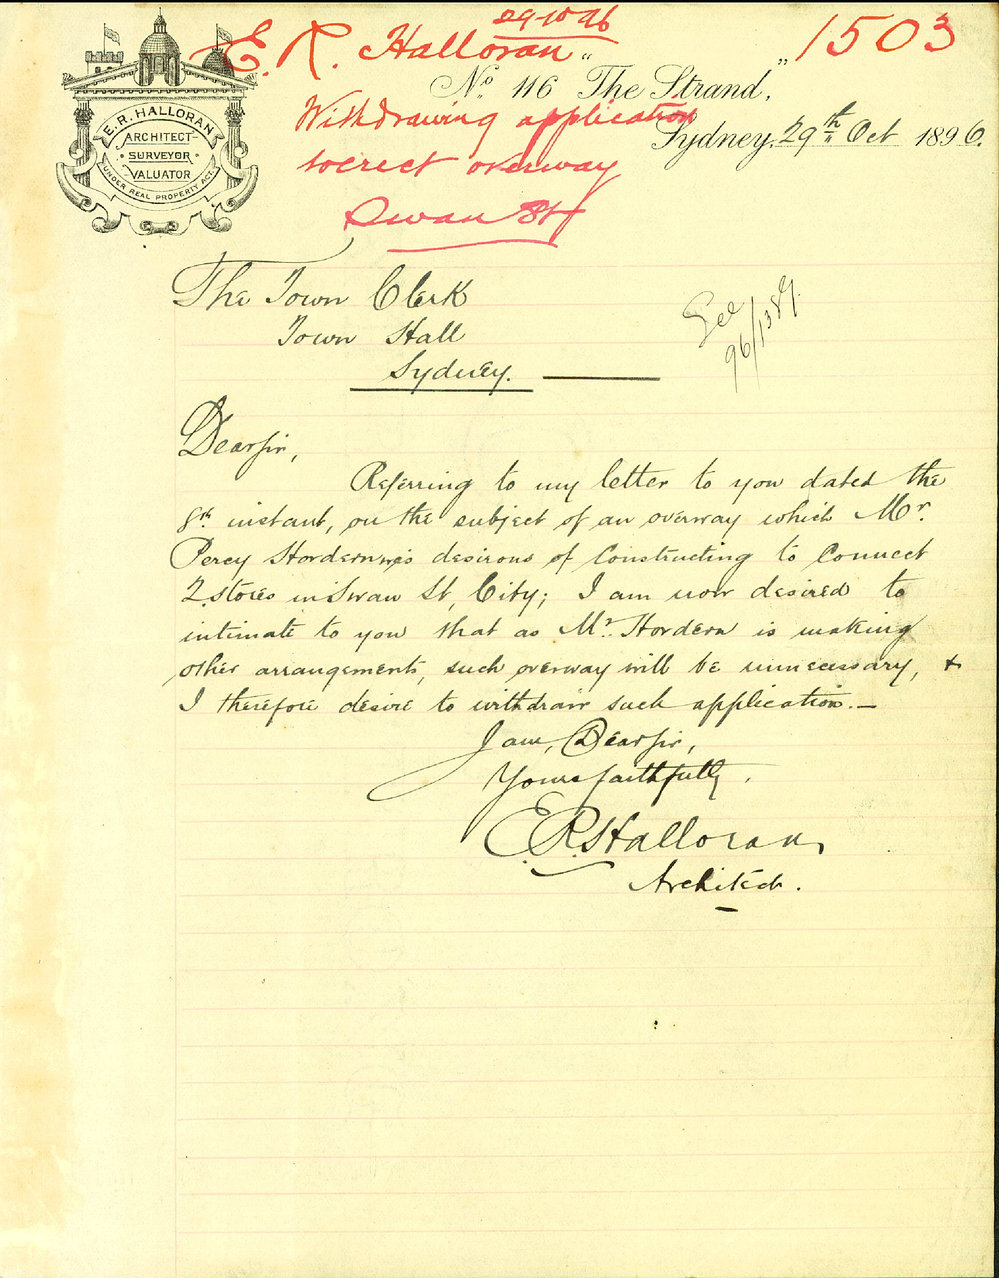 29-10-96
E. R. Halloran
1503
Withdrawing application
to erect overway
Swan St
E. R. HALLORAN
ARCHITECT
SURVEYOR
VALUATOR
UNDER REAL PROPERTY ACT.
No. 116 "The Strand,"
Sydney, 29th Oct 1896.
The Town Clerk
Town Hall
Sydney.
See
96/1389.
Dear Sir,
Referring to my letter to you dated the
8th instant, on the subject of an overway which Mr.
Percy Hordern was desirous of Constructing to Connect
2 stores in Swan St, City; I am now desired to
intimate to you that as Mr. Hordern is making
other arrangements, such overway will be unnecessary, &
I therefore desire to withdraw such application.—
I am, Dear Sir,
Yours faithfully,
E. R. Halloran
Architect.